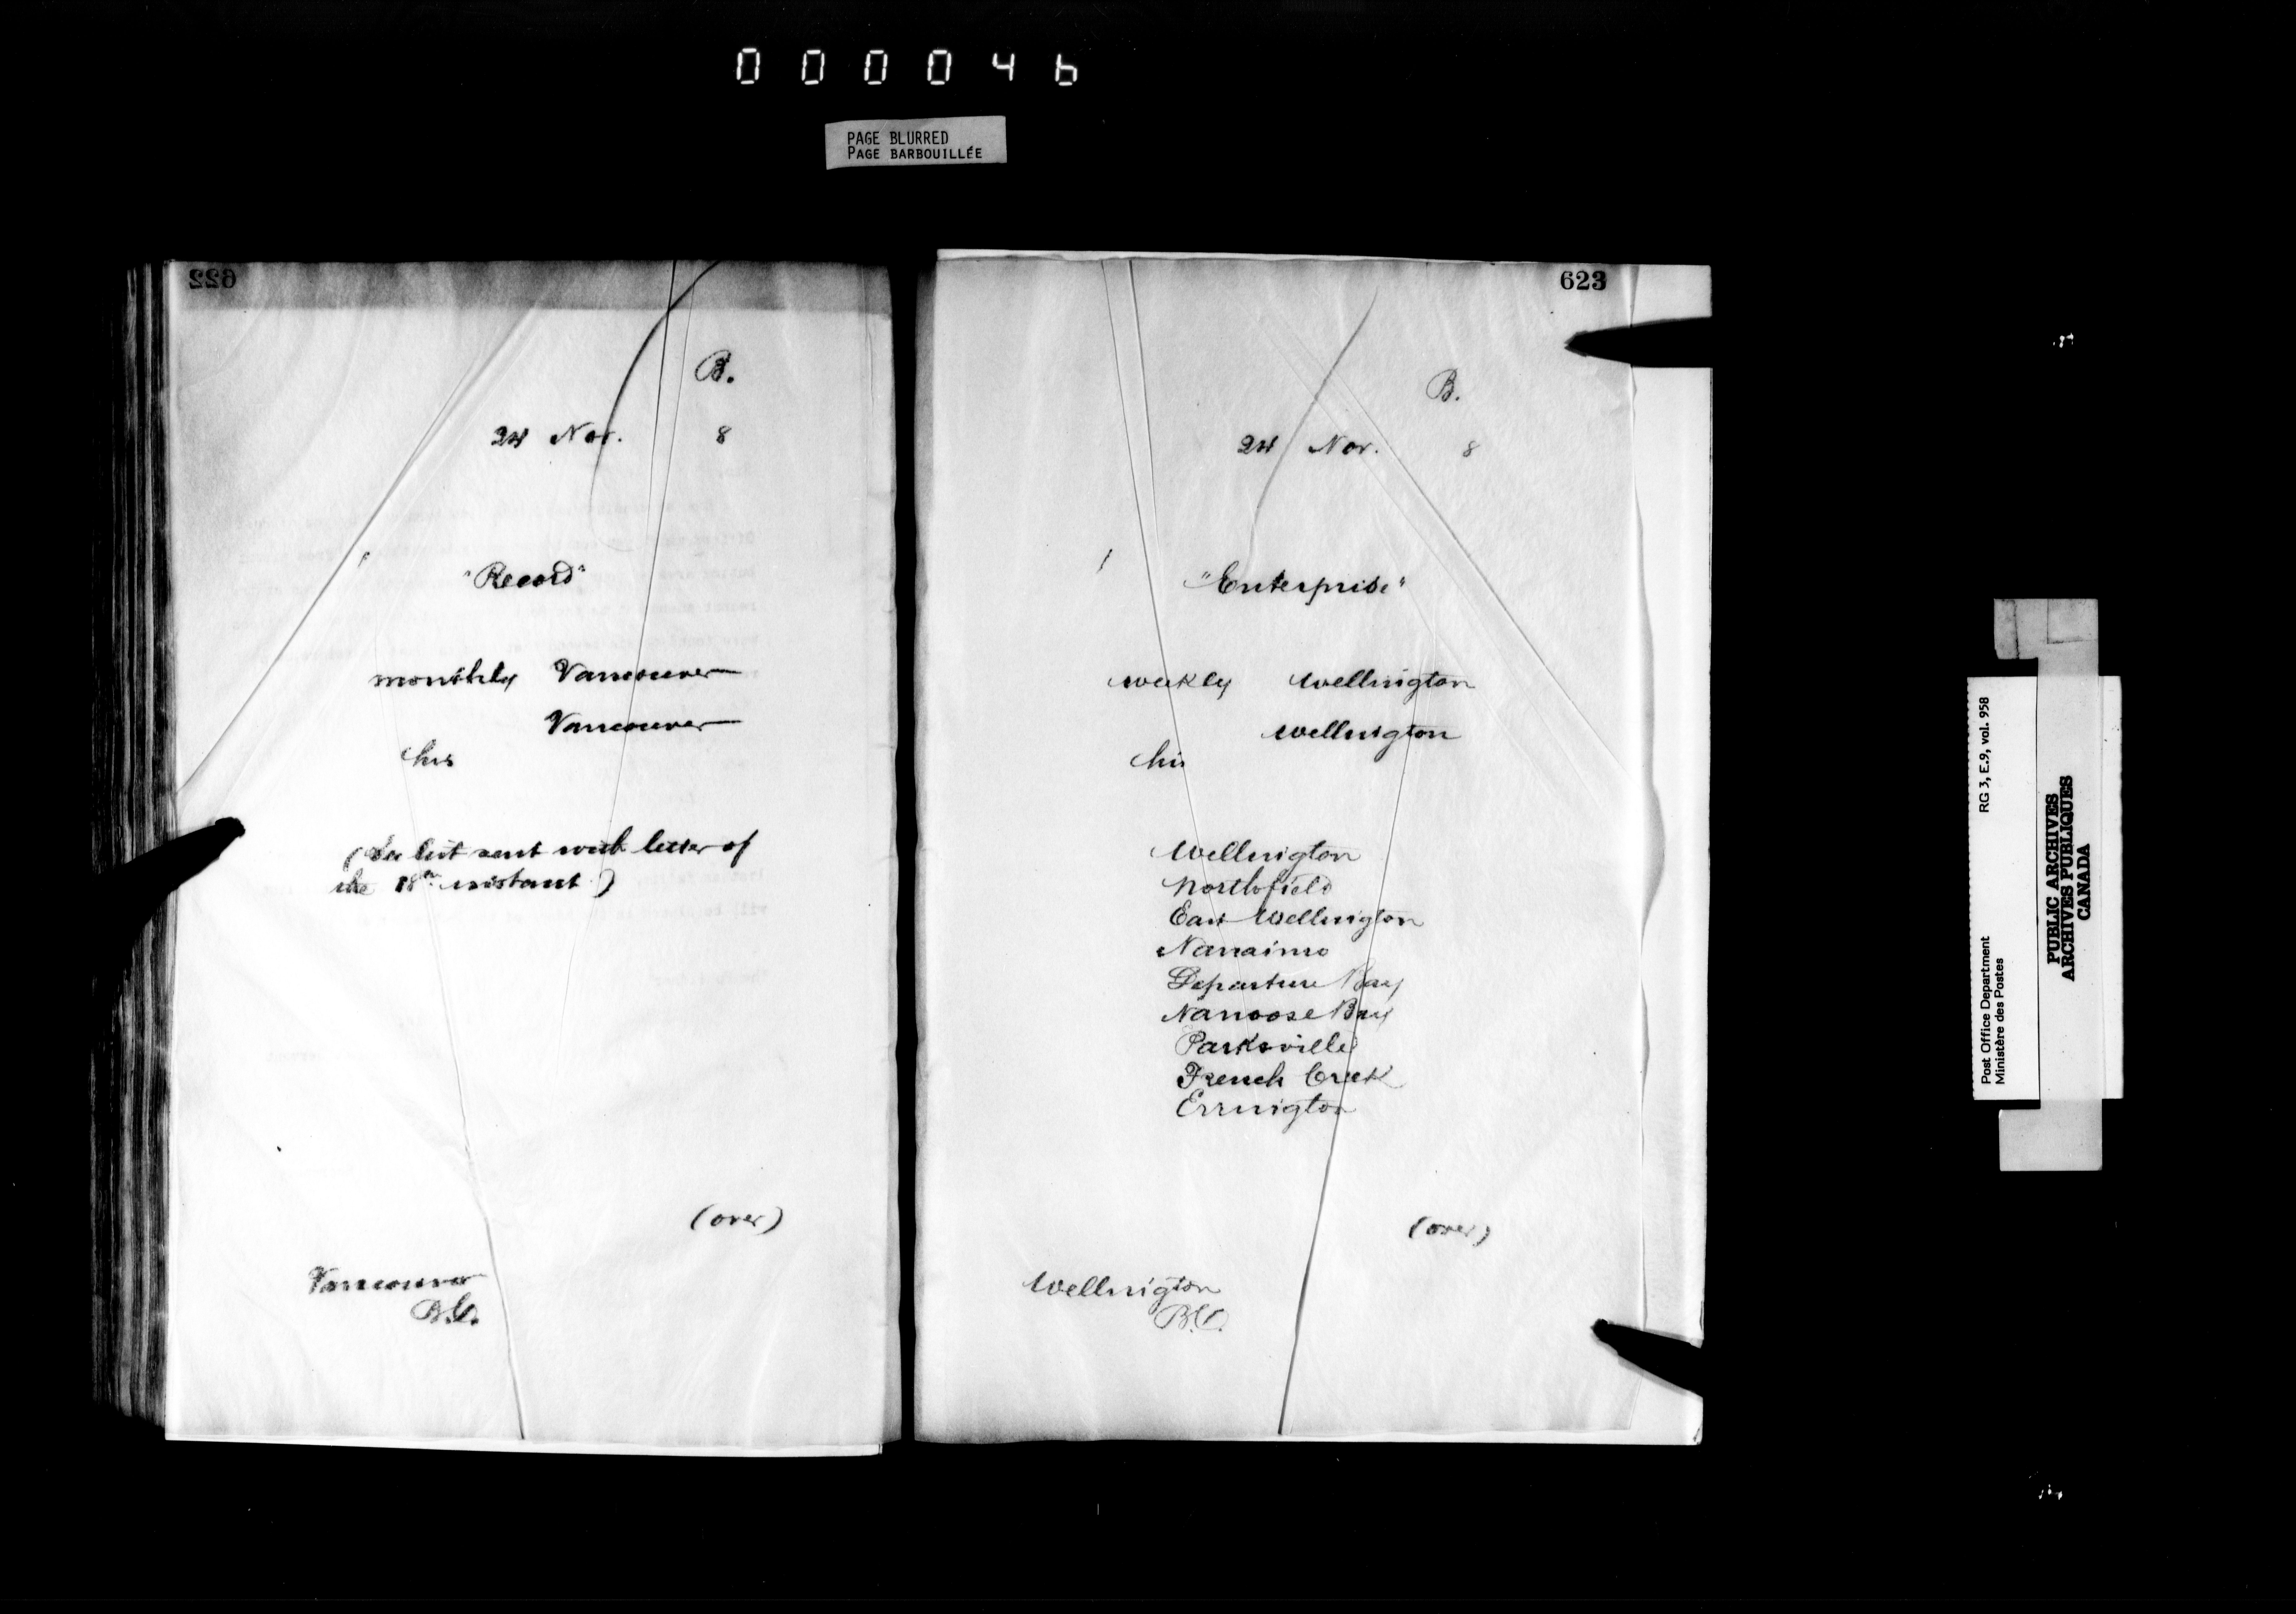 000046
PAGE BLURRED
PAGE BARBOUILLÉE
622
B.
24 Nov. 8
"Record"
monthly Vancouver
Vancouver
his
(See list sent with letter of
the 18th instant.)
(over)
Vancouver
B.C.
623
B.
24 Nov. 8
"Enterprise"
weekly Wellington
Wellington
his
Wellington
Northfield
East Wellington
Nanaimo
Departure Bay
Nanoose Bay
Parksville
French Creek
Errington
(over)
Wellington
B.C.
Post Office Department RG 3, E.9, vol. 958
Ministère des Postes
PUBLIC ARCHIVES
ARCHIVES PUBLIQUES
CANADA